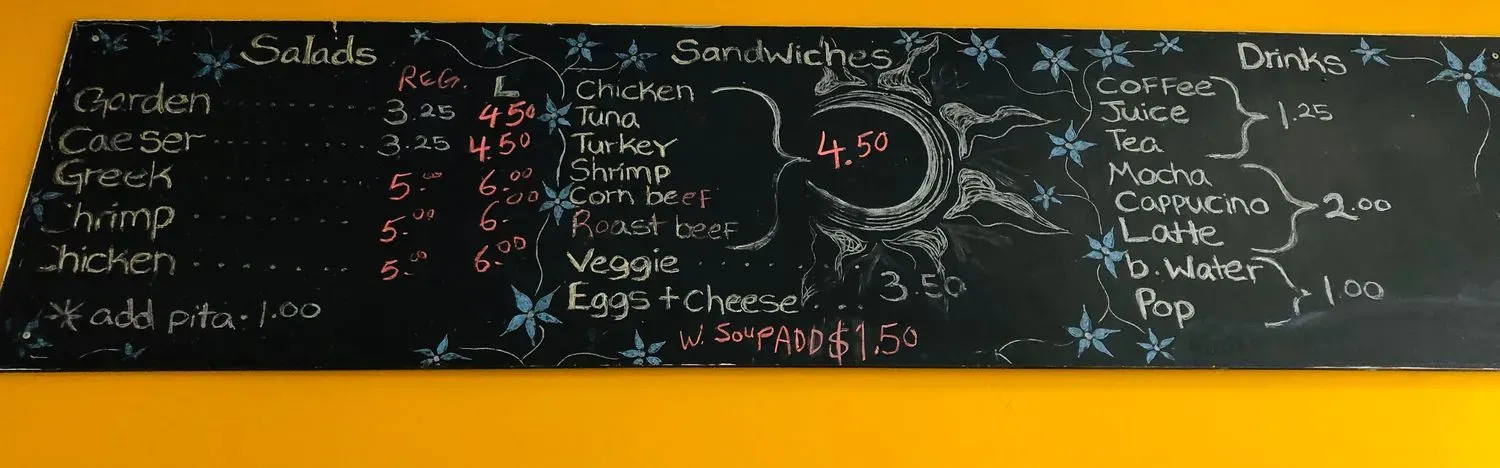 Salads
REG. L
Garden ........... 3.25 4.50
Caeser ........... 3.25 4.50
Greek ........... 5.00 6.00
Shrimp ........... 5.00 6.00
Chicken ........... 5.00 6.00
* add pita. 1.00
Sandwiches
Chicken
Tuna
Turkey
Shrimp
Corn beef
Roast beef
4.50
Veggie ...........
Eggs + Cheese .... 3.50
W. Soup ADD $1.50
Drinks
Coffee
Juice
Tea
1.25
Mocha
Cappucino
Latte
2.00
b. Water
Pop
1.00